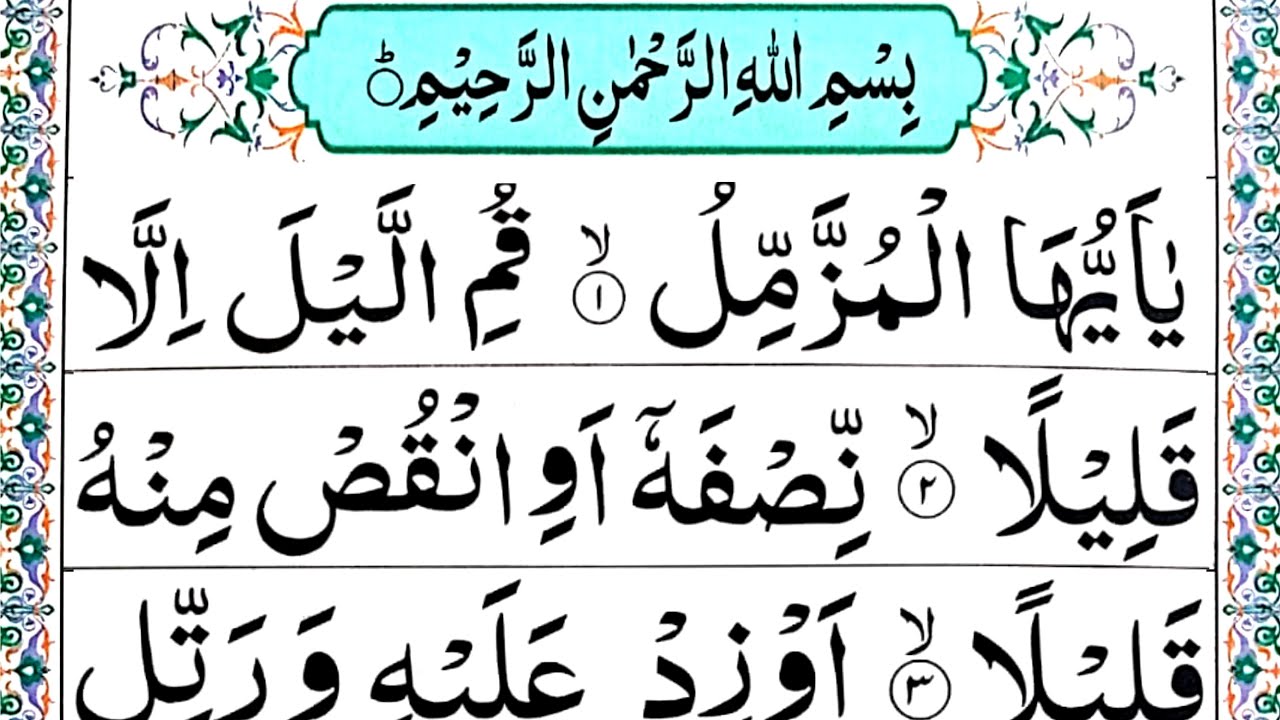 بِسْمِ اللهِ الرَّحْمٰنِ الرَّحِيْمِ ؕ
يٰۤاَيُّهَا الْمُزَّمِّلُ ۙ ۱ قُمِ الَّيْلَ اِلَّا
قَلِيْلًا ۙ ۲ نِّصْفَهٗۤ اَوِ انْقُصْ مِنْهُ
قَلِيْلًا ۙ ۳ اَوْ زِدْ عَلَيْهِ وَ رَتِّلِ